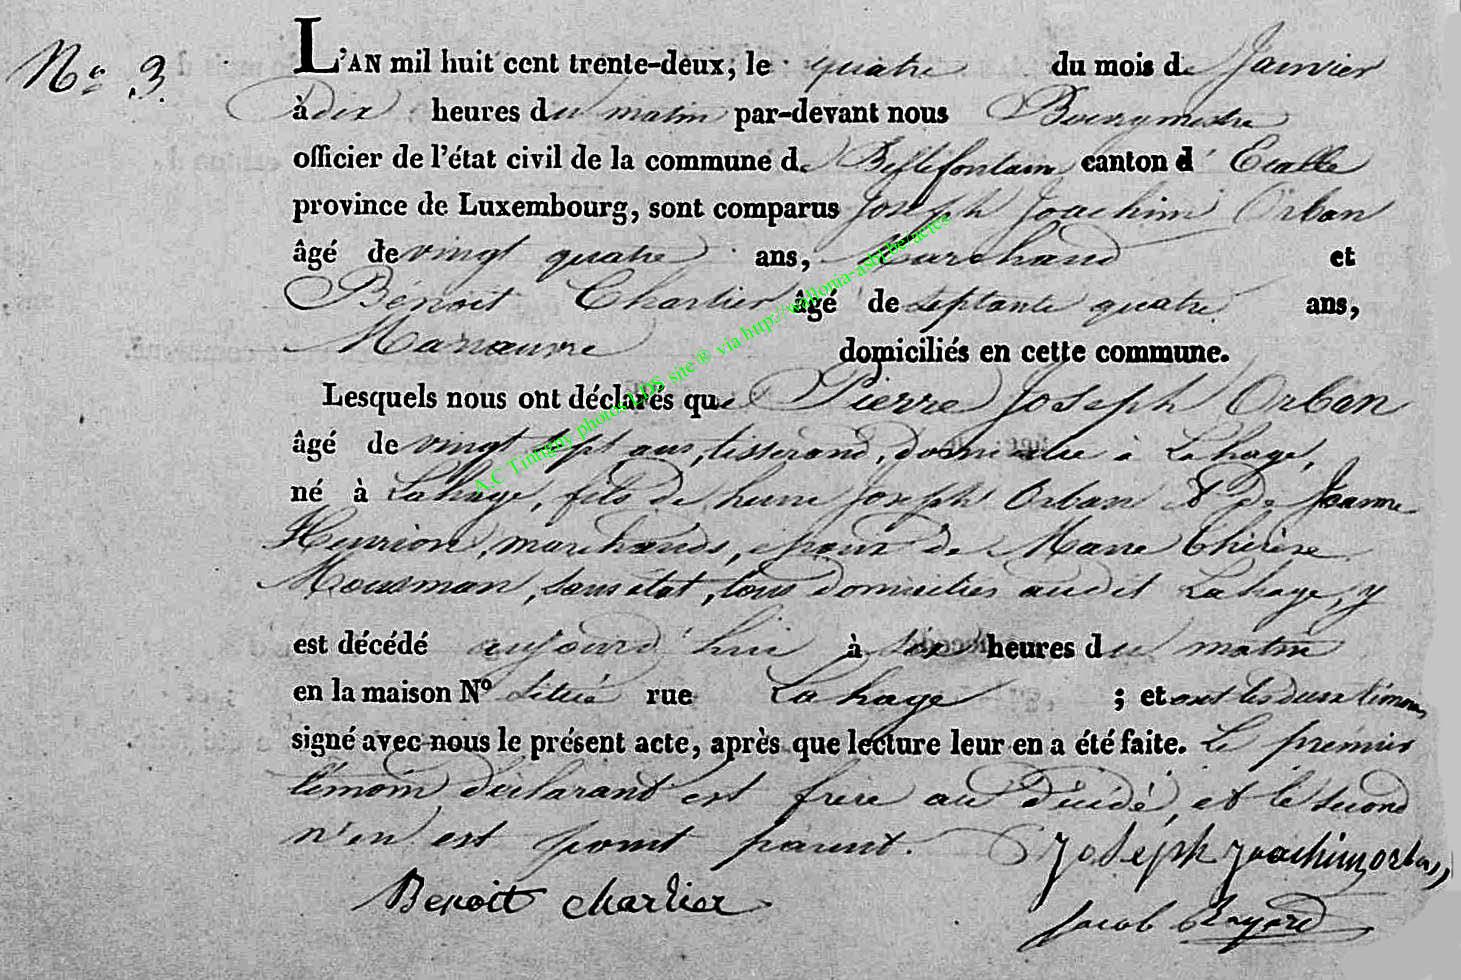 N° 3.
L'AN mil huit cent trente-deux, le quatre du mois de Janvier
à dix heures du matin par-devant nous Bourgmestre
officier de l'état civil de la commune de Bellefontaine canton d'Etalle
province de Luxembourg, sont comparus Joseph Joachim Orban
âgé de vingt quatre ans, Marchand et
Benoit Charlier âgé de septante quatre ans,
Manœuvre domiciliés en cette commune.
Lesquels nous ont déclarés que Pierre Joseph Orban
âgé de vingt sept ans, tisserand, domicilié à Lahage,
né à Lahage, fils de Joseph Orban & de Jeanne
Henrion, marchands, époux de Marie Thérèse
Mousman, sans état, tous domiciliés audit Lahage, y
est décédé aujourd'hui à six heures du matin
en la maison N° située rue Lahage ; et ont les deux témoins
signé avec nous le présent acte, après que lecture leur en a été faite. Le premier
témoin déclarant est frère au Décédé, et le second
n'en est point parent. Joseph Joachim Orban
Benoit Charlier
Jacob
A.C Tintigny photos LDS site ® via http://wallonia-asbl.be/actes